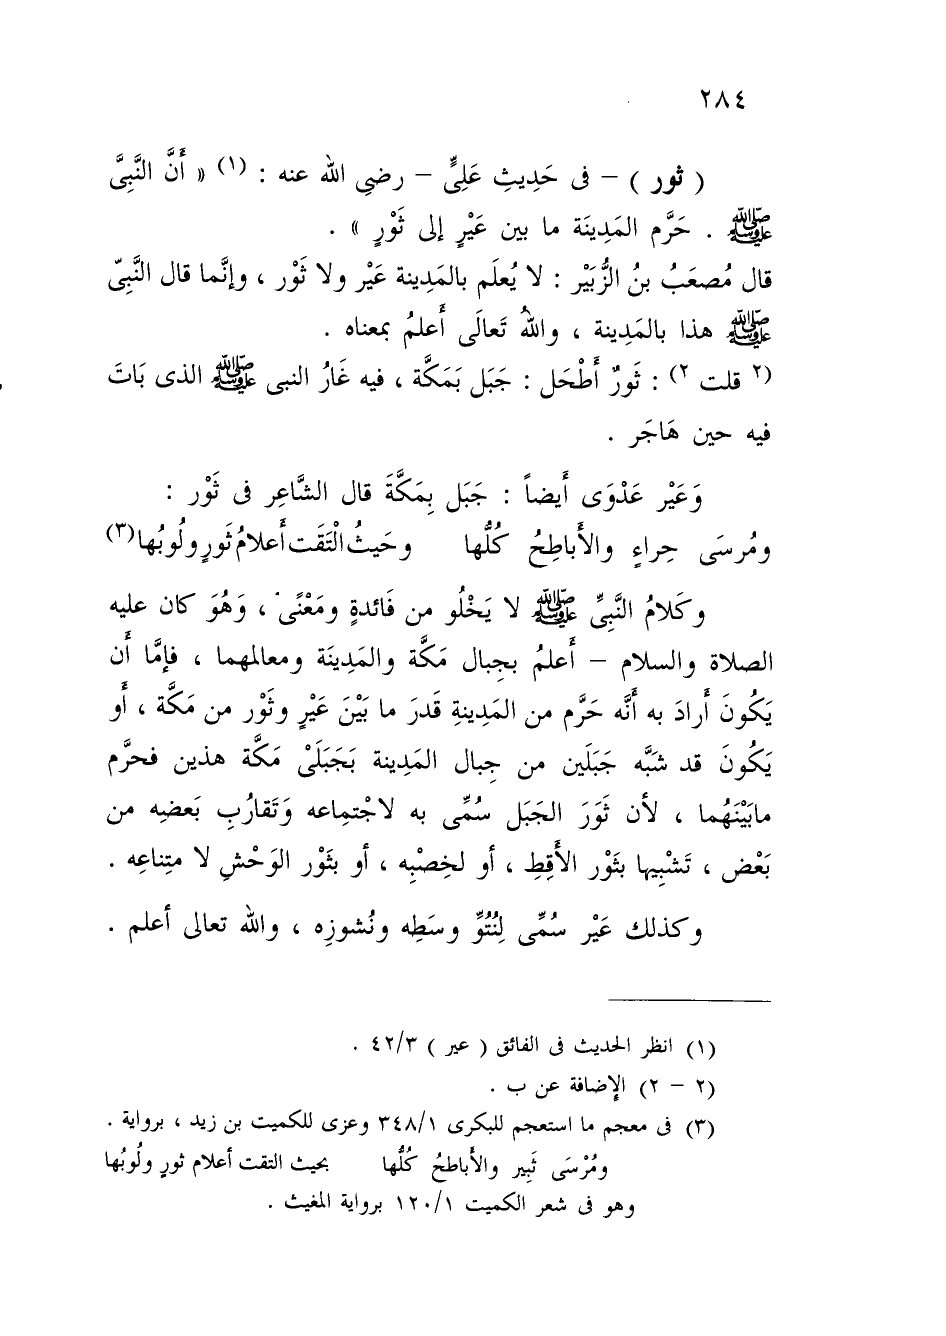 ٢٨٤
( ثور ) – فى حَدِيثِ عَلِىٍّ – رضي الله عنه : (١) « أَنَّ النَّبِىَّ
ﷺ . حَرَّم المَدِينَة ما بين عَيْرٍ إلى ثَوْرٍ » .
قال مُصعَبُ بنُ الزُّبَيْر : لا يُعلَم بالمَدِينة عَيْر ولا ثَوْر ، وإنَّما قال النَّبِىّ
ﷺ هذا بالمَدِينة ، واللهُ تَعالَى أَعلمُ بمعناه .
(٢ قلت ٢) : ثَورٌ أَطْحَل : جَبَل بَمَكَّة ، فيه غَارُ النبى ﷺ الذى بَاتَ
فيه حين هَاجَر .
وَعَيْر عَدْوَى أَيضاً : جَبَل بِمَكَّةَ قال الشَّاعِر فى ثَوْر :
ومُرسَى حِراءٍ والأَباطِحُ كُلُّها وحَيثُ الْتَقَت أَعلامُ ثَورٍ ولُوبُها(٣)
وكَلامُ النَّبِىِّ ﷺ لا يَخْلُو من فَائدةٍ ومَعْنًى ، وَهُوَ كان عليه
الصلاة والسلام – أَعلمُ بجِبال مَكَّة والمَدِينَة ومعالمهما ، فإمَّا أَن
يَكُونَ أَرادَ به أَنَّه حَرَّم من المَدِينةِ قَدرَ ما بَيْنَ عَيْرٍ وثَوْر من مَكَّة ، أَو
يَكُونَ قد شَبَّه جَبَلَين من جِبال المَدِينة بَجَبَلَىْ مَكَّة هذين فحرَّم
مابَيْنَهُما ، لأن ثَورَ الجَبَل سُمِّى به لاجْتِماعه وَتَقارُبِ بَعضِه من
بَعْض ، تَشْبِيها بثَوْر الأَقِطِ ، أو لخِصْبِه ، أو بثَوْر الوَحْشِ لا متِناعِه .
وكذلك عَيْر سُمِّى لِنُتُوِّ وسَطِه ونُشوزِه ، والله تعالى أعلم .
(١) انظر الحديث فى الفائق ( عير ) ٤٢/٣ .
(٢ – ٢) الإضافة عن ب .
(٣) فى معجم ما استعجم للبكرى ٣٤٨/١ وعزى للكميت بن زيد ، برواية .
ومُرْسَى ثَبِير والأَباطحُ كُلُّها بحيث التقت أعلام ثورٍ ولُوبُها
وهو فى شعر الكميت ١٢٠/١ برواية المغيث .